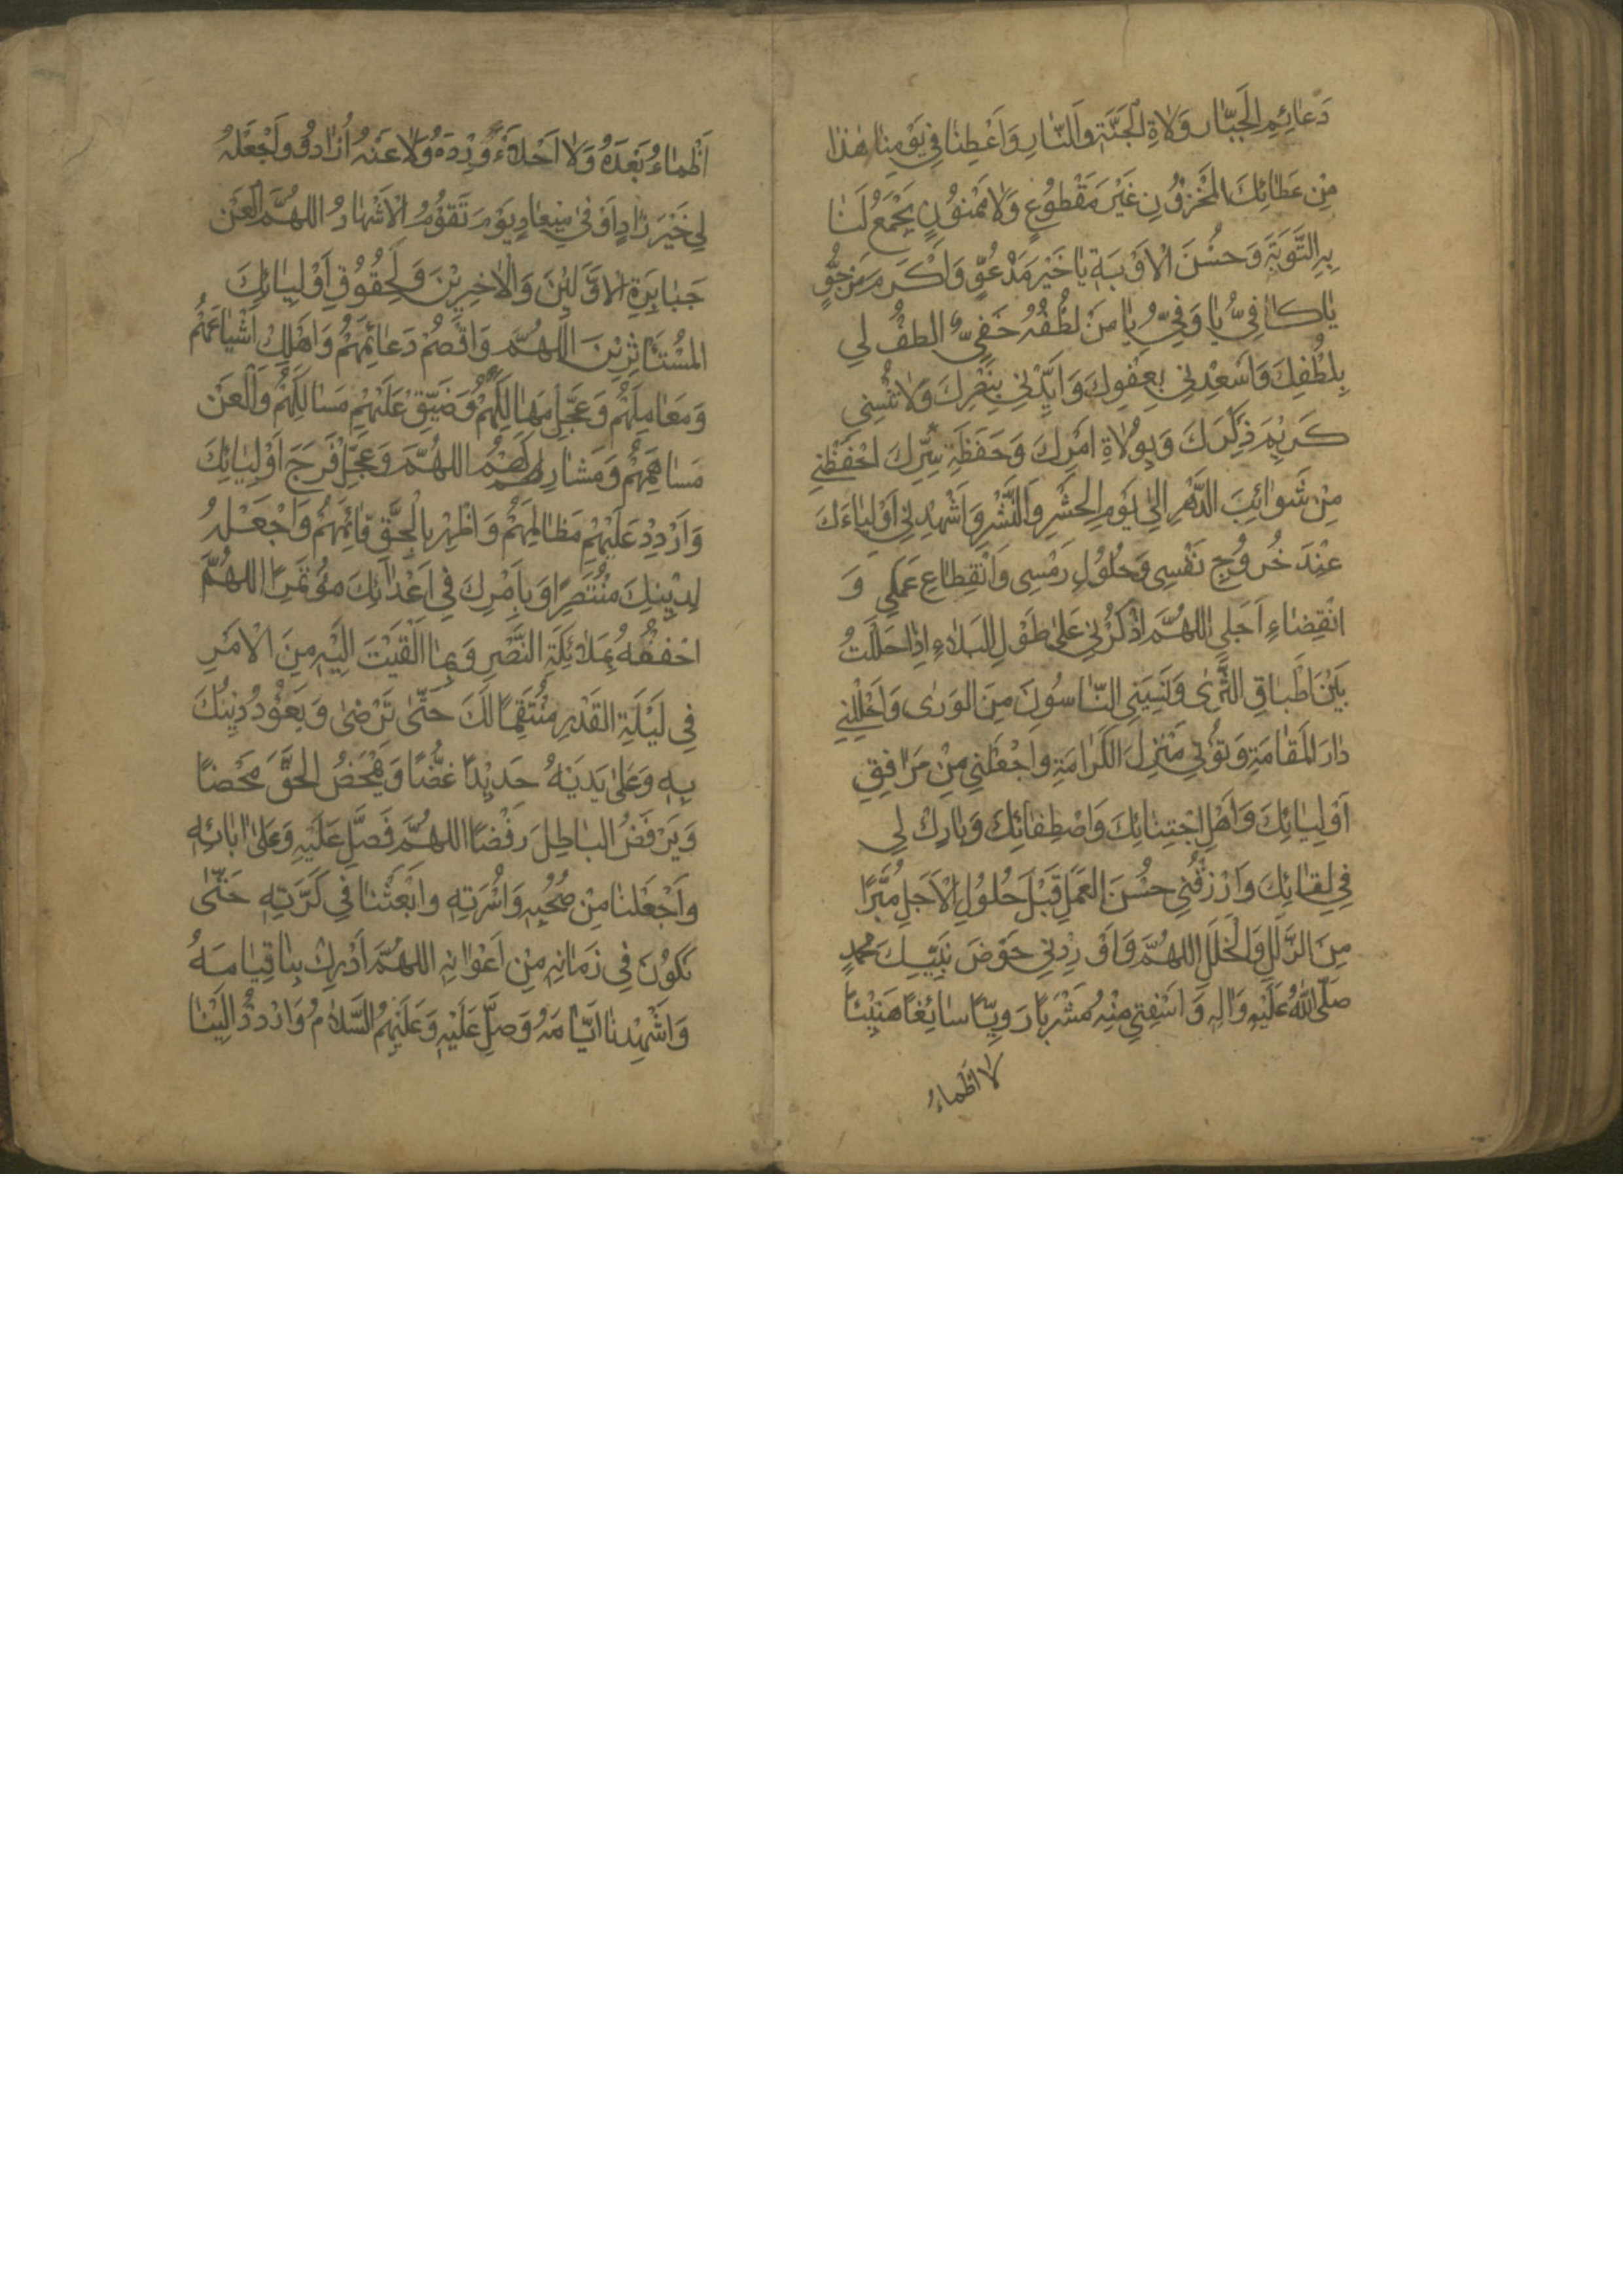 دَعٰائِمِ الجَبّٰارِ وَوُلاٰةِ الجَنَّةِ وَالنّٰارِ وَاَعْطِنٰا فِي يَوْمِنٰا هٰذٰا
مِنْ عَطٰائِكَ المَخْزُوْنِ غَيْرَ مَقْطُوْعٍ وَلاٰ مَمْنُوْنٍ يَجْمَعُ لَنٰا
بِهِ التَّوْبَةَ وَحُسْنَ الاَوْبَةِ يٰا خَيْرَ مَدْعُوٍّ وَاَكْرَمَ مَرْجُوٍّ
يٰا كٰافِيُّ يٰا وَفِيُّ يٰا مَنْ لُطْفُهُ خَفِيٌّ الطُفْ لِي
بِلُطْفِكَ وَاَسْعِدْنِي بِعَفْوِكَ وَاَيِّدْنِي بِنَصْرِكَ وَلاٰ تُنْسِنِي
كَرِيْمَ ذِكْرِكَ وَبِوُلاٰةِ اَمْرِكَ وَحَفَظَةِ سِرِّكَ احْفَظْنِي
مِنْ شَوٰائِبِ الدَّهْرِ اِلىٰ يَوْمِ الحَشْرِ وَالنَّشْرِ وَاَشْهِدْنِي اَوْلِيٰاءَكَ
عِنْدَ خُرُوْجِ نَفْسِي وَحُلُوْلِ رَمْسِي وَانْقِطٰاعِ عَمَلِي وَ
انْقِضٰاءِ اَجَلِي اللهُمَّ اذْكُرْنِي عَلىٰ طُوْلِ البَلاٰءِ اِذٰا حَلَلْتُ
بَيْنَ اَطْبٰاقِ الثَّرىٰ وَنَسِيَنِي النّٰاسُوْنَ مِنَ الوَرىٰ وَاَحْلِلْنِي
دٰارَ المُقٰامَةِ وَبَوِّئْنِي مَنْزِلَ الكَرٰامَةِ وَاجْعَلْنِي مِنْ مُرٰافِقِي
اَوْلِيٰائِكَ وَاَهْلِ اجْتِبٰائِكَ وَاصْطِفٰائِكَ وَبٰارِكْ لِي
فِي لِقٰائِكَ وَارْزُقْنِي حُسْنَ العَمَلِ قَبْلَ حُلُوْلِ الاَجَلِ مُبَرَّاً
مِنَ الزَّلَلِ وَالْخَلَلِ اللهُمَّ وَاَوْرِدْنِي حَوْضَ نَبِيِّكَ مُحَمَّدٍ
صَلَّى اللهُ عَلَيْهِ وَاٰلِهِ وَاسْقِنِي مِنْهُ مَشْرَبًا رَوِيًّا سٰائِغًا هَنِيْئًا
لاٰ اظْمٰاءُ
اَظْمٰاءُ بَعْدَهُ وَلاٰ اُحَلَّاءُ وِرْدَهُ وَلاٰ عَنْهُ اُذٰادُ وَاَجْعَلْهُ
لِي خَيْرَ زٰادٍ اَوْفىٰ مِيْعٰادٍ يَوْمَ تَقُوْمُ الاَشْهٰادُ اللهُمَّ الْعَنْ
جَبٰابِرَةِ الاَوَّلِيْنَ وَالْاٰخِرِيْنَ وَلِحُقُوْقِ اَوْلِيٰائِكَ
المُسْتَأْثِرِيْنَ اَللهُمَّ وَاقْصِمْ دَعٰائِمَهُمْ وَاَهْلِكْ اَشْيٰاعَهُمْ
وَمَعٰامِلَهُمْ وَعَجِّلْ مَهٰالِكَهُمْ وَضَيِّقْ عَلَيْهِمْ مَسٰالِكَهُمْ وَالْعَنْ
مَسٰاهِمَهُمْ وَمَشٰارِكَهُمُ اللهُمَّ وَعَجِّلْ فَرَجَ اَوْلِيٰائِكَ
وَارْدُدْ عَلَيْهِمْ مَظٰالِمَهُمْ وَاَظْهِرْ بِالْحَقِّ قٰائِمَهُمْ وَاجْعَلْهُ
لِدِيْنِكَ مُنْتَصِرًا وَبِاَمْرِكَ فِي اَعْدٰائِكَ مُؤْتَمِرًا اللهُمَّ
احْفُفْهُ بِمَلاٰئِكَةِ النَّصْرِ وَبِمٰا اَلْقَيْتَ اِلَيْهِ مِنَ الْاَمْرِ
فِي لَيْلَةِ القَدْرِ مُنْتَقِمًا لَكَ حَتّٰى تَرْضىٰ وَيَعُوْدَ دِيْنُكَ
بِهِ وَعَلىٰ يَدَيْهُ حَدِيْدًا غَضًّا وَيَمْحَضَ الحَقَّ مَحْضًا
وَيَرْفَضَ البٰاطِلَ رَفْضًا اللهُمَّ فَصَلِّ عَلَيْهِ وَعَلىٰ اٰبٰائِهِ
وَاَجْعَلْنٰا مِنْ صُحْبِهِ وَاُسْرَتِهِ وَابْعَثْنٰا فِي كَرَّتِهِ حَتّٰى
نَكُوْنَ فِي زَمٰانِهِ مِنْ اَعْوٰانِهِ اللهُمَّ اَدْرِكْ بِنٰا قِيٰامَهُ
وَاَشْهِدْنٰا اَيّٰامَهُ وَصَلِّ عَلَيْهِ وَعَلَيْهِمُ السَّلاٰمُ وَارْدُدْ اِلَيْنٰا